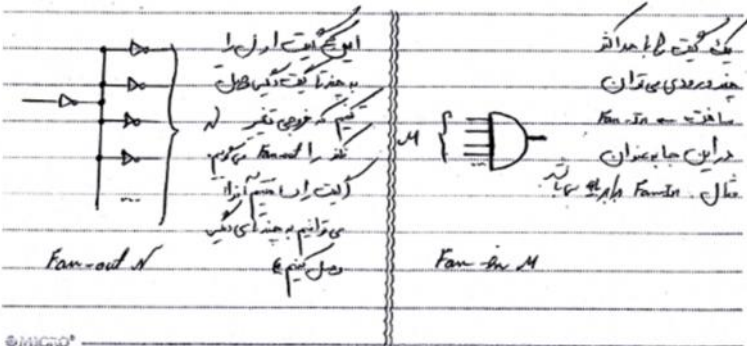 یک گیت را با حداکثر
چند ورودی می‌توان
ساخت ← Fan-In
در این جا به عنوان
مثال Fan-In برابر می‌باشد
M
Fan-in M
این که گیت اول را
به چند تا گیت دیگر وصل
کنیم که خروجی تغییر
نکند را Fan-out می‌گوییم
گیت را ساختیم آنرا
می‌توانیم به چند تای دیگر
وصل کنیم؟
N
Fan-out N
MICRO